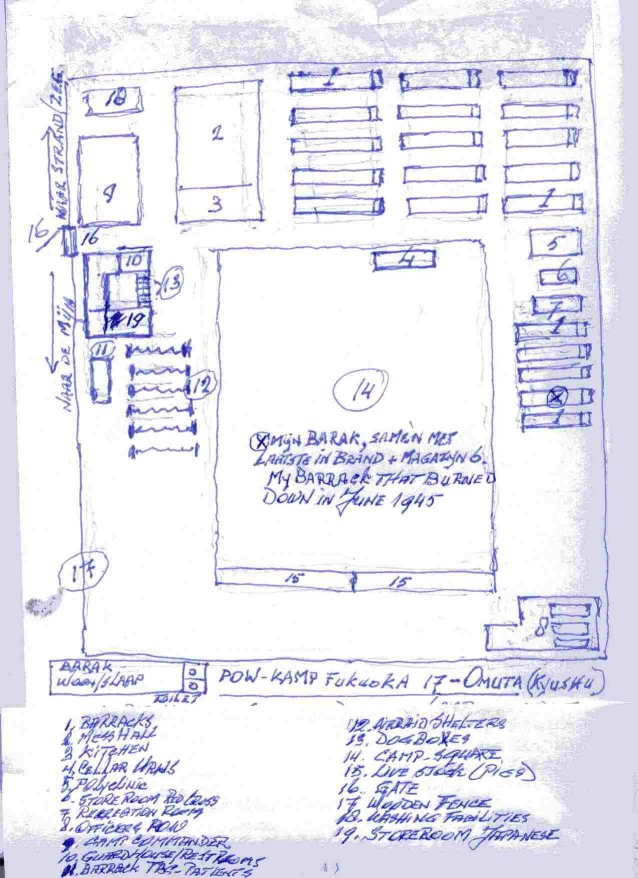 NAAR STRAND/ZEE
NAAR DE MIJN
18
2
1
9
3
1
16
16
5
10
4
6
13
7
#19
1
11
12
14
MIJN BARAK, SAMEN MET
LAATSTE IN BRAND + MAGAZIJN 6.
MY BARRACK THAT BURNED
DOWN IN JUNE 1945
1
17
15
15
8
BARAK
WOON/SLAAP
TOILET
POW-KAMP FUKUOKA 17-OMUTA (KYUSHU)
1, BARRACKS
2. MESS HALL
3 KITCHEN
4. CELLAR
5, POLYCLINIC
6. STOREROOM RED CROSS
7, RECREATION ROOM
8. OFFICERS POW
9. CAMP COMMANDER
10. GUARDHOUSE/RESTROOMS
11. BARRACK TBC-PATIENTS
12. AIRRAID SHELTERS
13. DOGBOXES
14. CAMP-SQUARE
15. LIVE STOCK (PIGS)
16. GATE
17. WOODEN FENCE
18. WASHING FACILITIES
19. STOREROOM JAPANESE